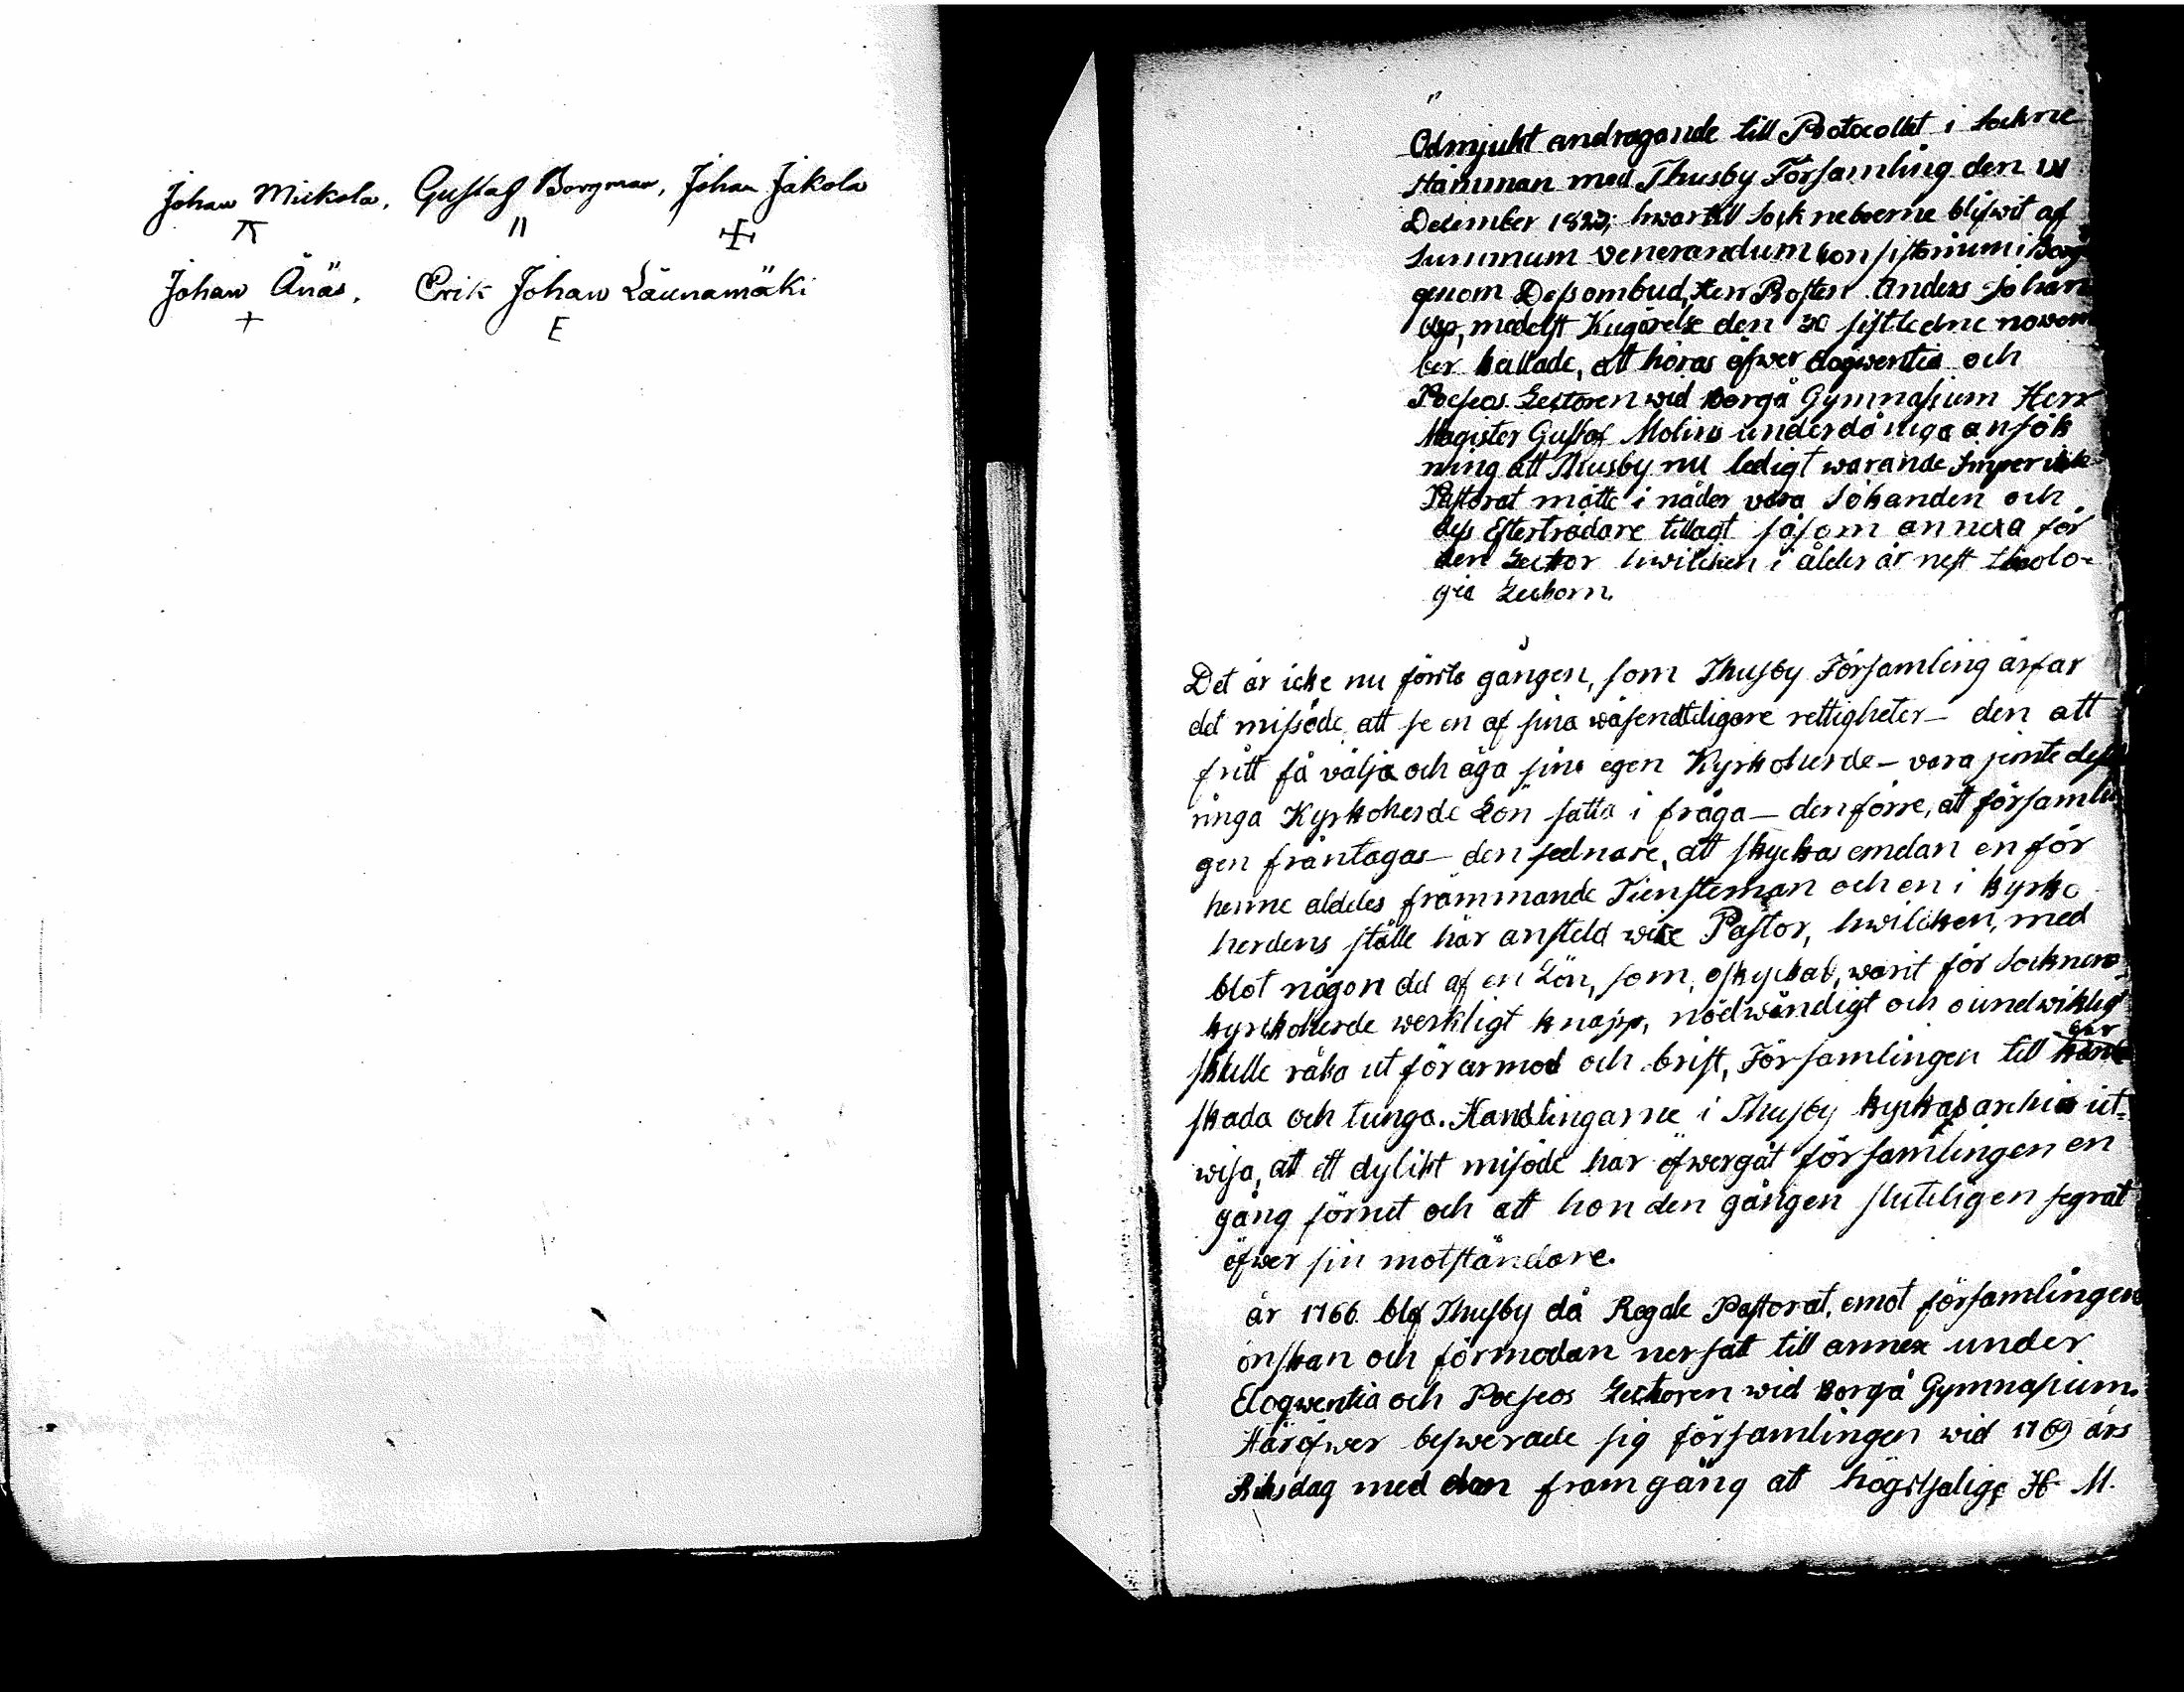 Johan Mickola, Gustaf Borgman, Johan Jakola
Johan Ånäs, Erik Johan Läunamäki
E
Ödmjukt andragande till Protocollet i Sockne
Stämman med Thusby Församling den
December 1823; hwartill Sockneboerne blifwit af
Summum Venerandum Consistorium i Borgå
genom Dess ombud, Herr Prosten Anders Johan
medelst Kugörelse den 30 sistledne novem
ber kallade, att höras öfwer Eloqwentiæ och
Poeseos Lectoren wid Borgå Gymnasium Herr
Magister Gustaf Molins underdåniga ansök
ning att Thusby nu ledigt warande Imperielle
Pastorat måtte i nåder vara Sökanden och
dess Efterträdare tillagt såsom annexa för
den Lector hwilcken i ålder är nest theolo-
giæ Lectorn.
Det är icke nu första gången, som Thusby Församling ärfar
det missöde att se en af sina wäsendteligare rettigheter – den att
fritt få välja och äga sina egen Kyrkoherde – vara jemte dess
ringa Kyrkoherde Lön satta i fråga – den förre, att församlin
gen fråntagas – den sednare, att styckas emdan en för
henne aldeles främmande Tiensteman och en i kyrko
herdens ställe här ansteld wice Pastor, hwilcken, med
blot någon del af en Lön, som, ostyckad, warit för Socknens
kyrckoherde werkligt knapp, nödwändigt och oundwikligt
skulle råka ut för armod och brist, Församlingen till
skada och tunga. Handlingarne i Thusby kyrkas archiv ut-
wisa, att ett dylikt misöde har öfwergåt församlingen en
gång förrut och att hon den gången slutligen segrat
öfwer sin motståndare.
år 1766 blef Thusby då Regale Pastorat, emot församlingens
önskan och förmodan nersatt till annex under
Eloqwentia och Poeseos Lectoren wid Borgå Gymnasium.
Häröfwer beswerade sig församlingen wid 1769 års
Riksdag med den framgång att högstsalige H. M.